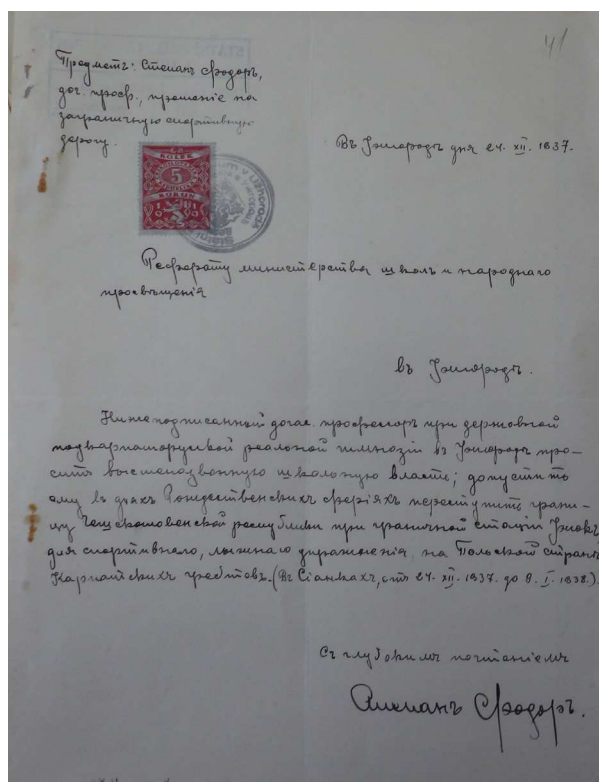 41
Предметъ: Стефанъ Фодоръ,
дог. проф., прошеніе на
заграничную спортивную
дорогу.
Въ Ужгородѣ дня 24. XII. 1937.
KOLEK
5
KORUN
Реферату министерства школъ и народнаго
просвѣщенія
въ Ужгородѣ.
Нижеподписанный догов. професоръ при державной
подкарпаторусской реальной гимназіи въ Ужгородѣ про-
ситъ вышеназванную школьную власть, допустити
ему въ дняхъ Рождественскихъ феріяхъ переступитъ грани-
цу Чешскословенской республики при граничной стаціи Ужокъ
для спортивнаго, лыжнаго упражненія на Польской странѣ
Карпатскихъ хребтовъ. (Въ Сіанкахъ, отъ 24. XII. 1937. до 8. I. 1938.)
Съ глубокимъ почтаніемъ
Стефанъ Фодоръ.